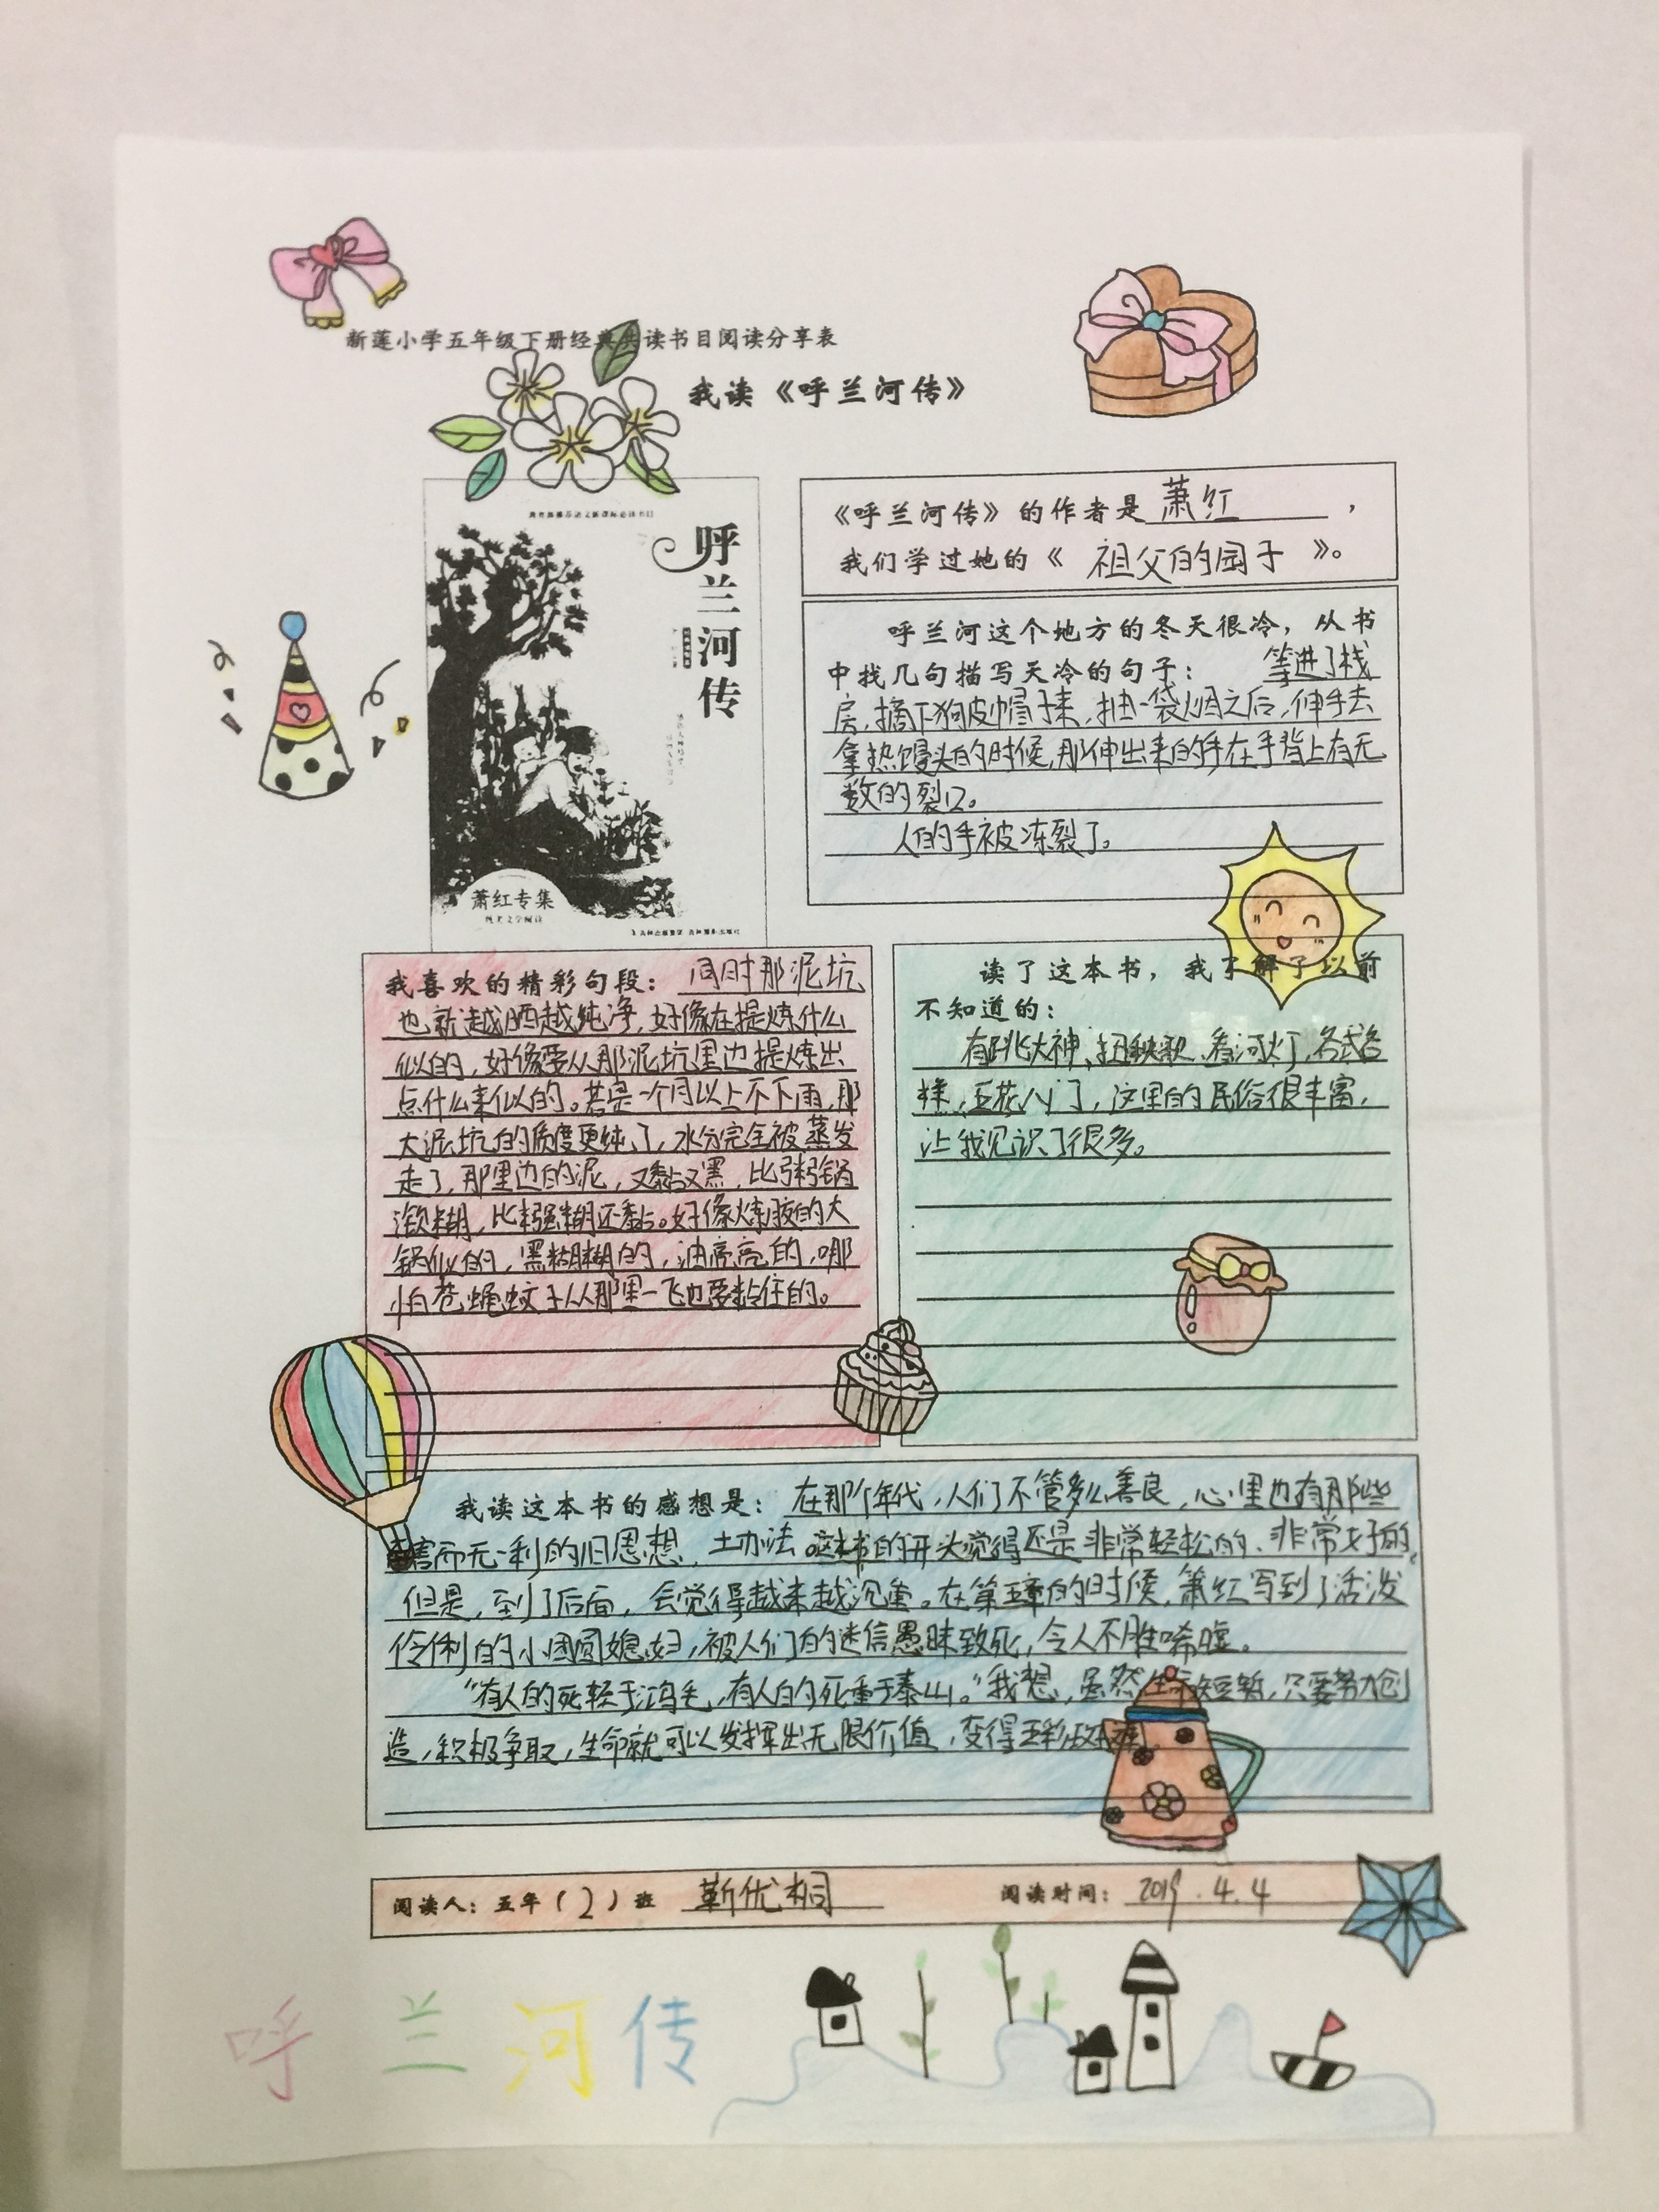 新莲小学五年级下册经典共读书目阅读分享表
我读《呼兰河传》
呼兰河传
萧红专集
《呼兰河传》的作者是萧红，
我们学过她的《祖父的园子》。
呼兰河这个地方的冬天很冷，从书
中找几句描写天冷的句子：等进了栈
房，摘下狗皮帽子来，抽一袋烟之后，伸手去
拿热馒头的时候，那伸出来的手在手背上有无
数的裂口。
人的手被冻裂了。
我喜欢的精彩句段：同时那泥坑
也就越晒越纯净，好像在提炼什么
似的，好像要从那泥坑里边提炼出
点什么来似的。若是一个月以上不下雨，那
大泥坑的质度更纯了，水分完全被蒸发
走了，那里边的泥，又黏又黑，比粥锅
潋糊，比糨糊还黏。好像炼胶的大
锅似的，黑糊糊的，油亮亮的，哪
怕苍蝇蚊子从那里一飞也要粘住的。
读了这本书，我了解了以前
不知道的：
有跳大神、扭秧歌、看河灯，各式各
样，五花八门，这里的民俗很丰富，
让我见识了很多。
我读这本书的感想是：在那个年代，人们不管多么善良，心里也有那些
有害而无利的旧思想，土办法。这本书的开头觉得还是非常轻松的、非常好的。
但是，到了后面，会觉得越来越沉重。在第五章的时候，萧红写到了活泼
伶俐的小团圆媳妇，被人们的迷信愚昧致死，令人不胜唏嘘。
“有人的死轻于鸿毛，有人的死重于泰山。”我想，虽然生命短暂，只要努力创
造，积极争取，生命就可以发挥出无限价值，变得五彩
阅读人：五年（2）班 靳优桐 阅读时间：2019.4.4
呼兰河传